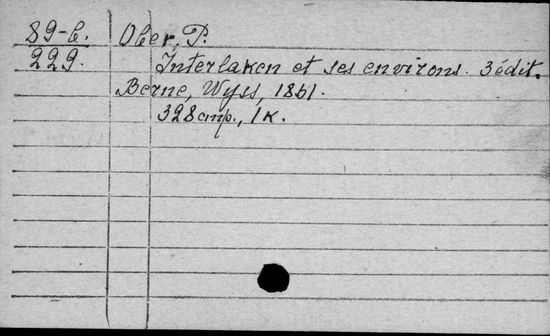 89-b. Ober, P.
229. Interlaken et ses environs. 3édit.
Berne, Wyss, 1861.
328 стр., 1 к.